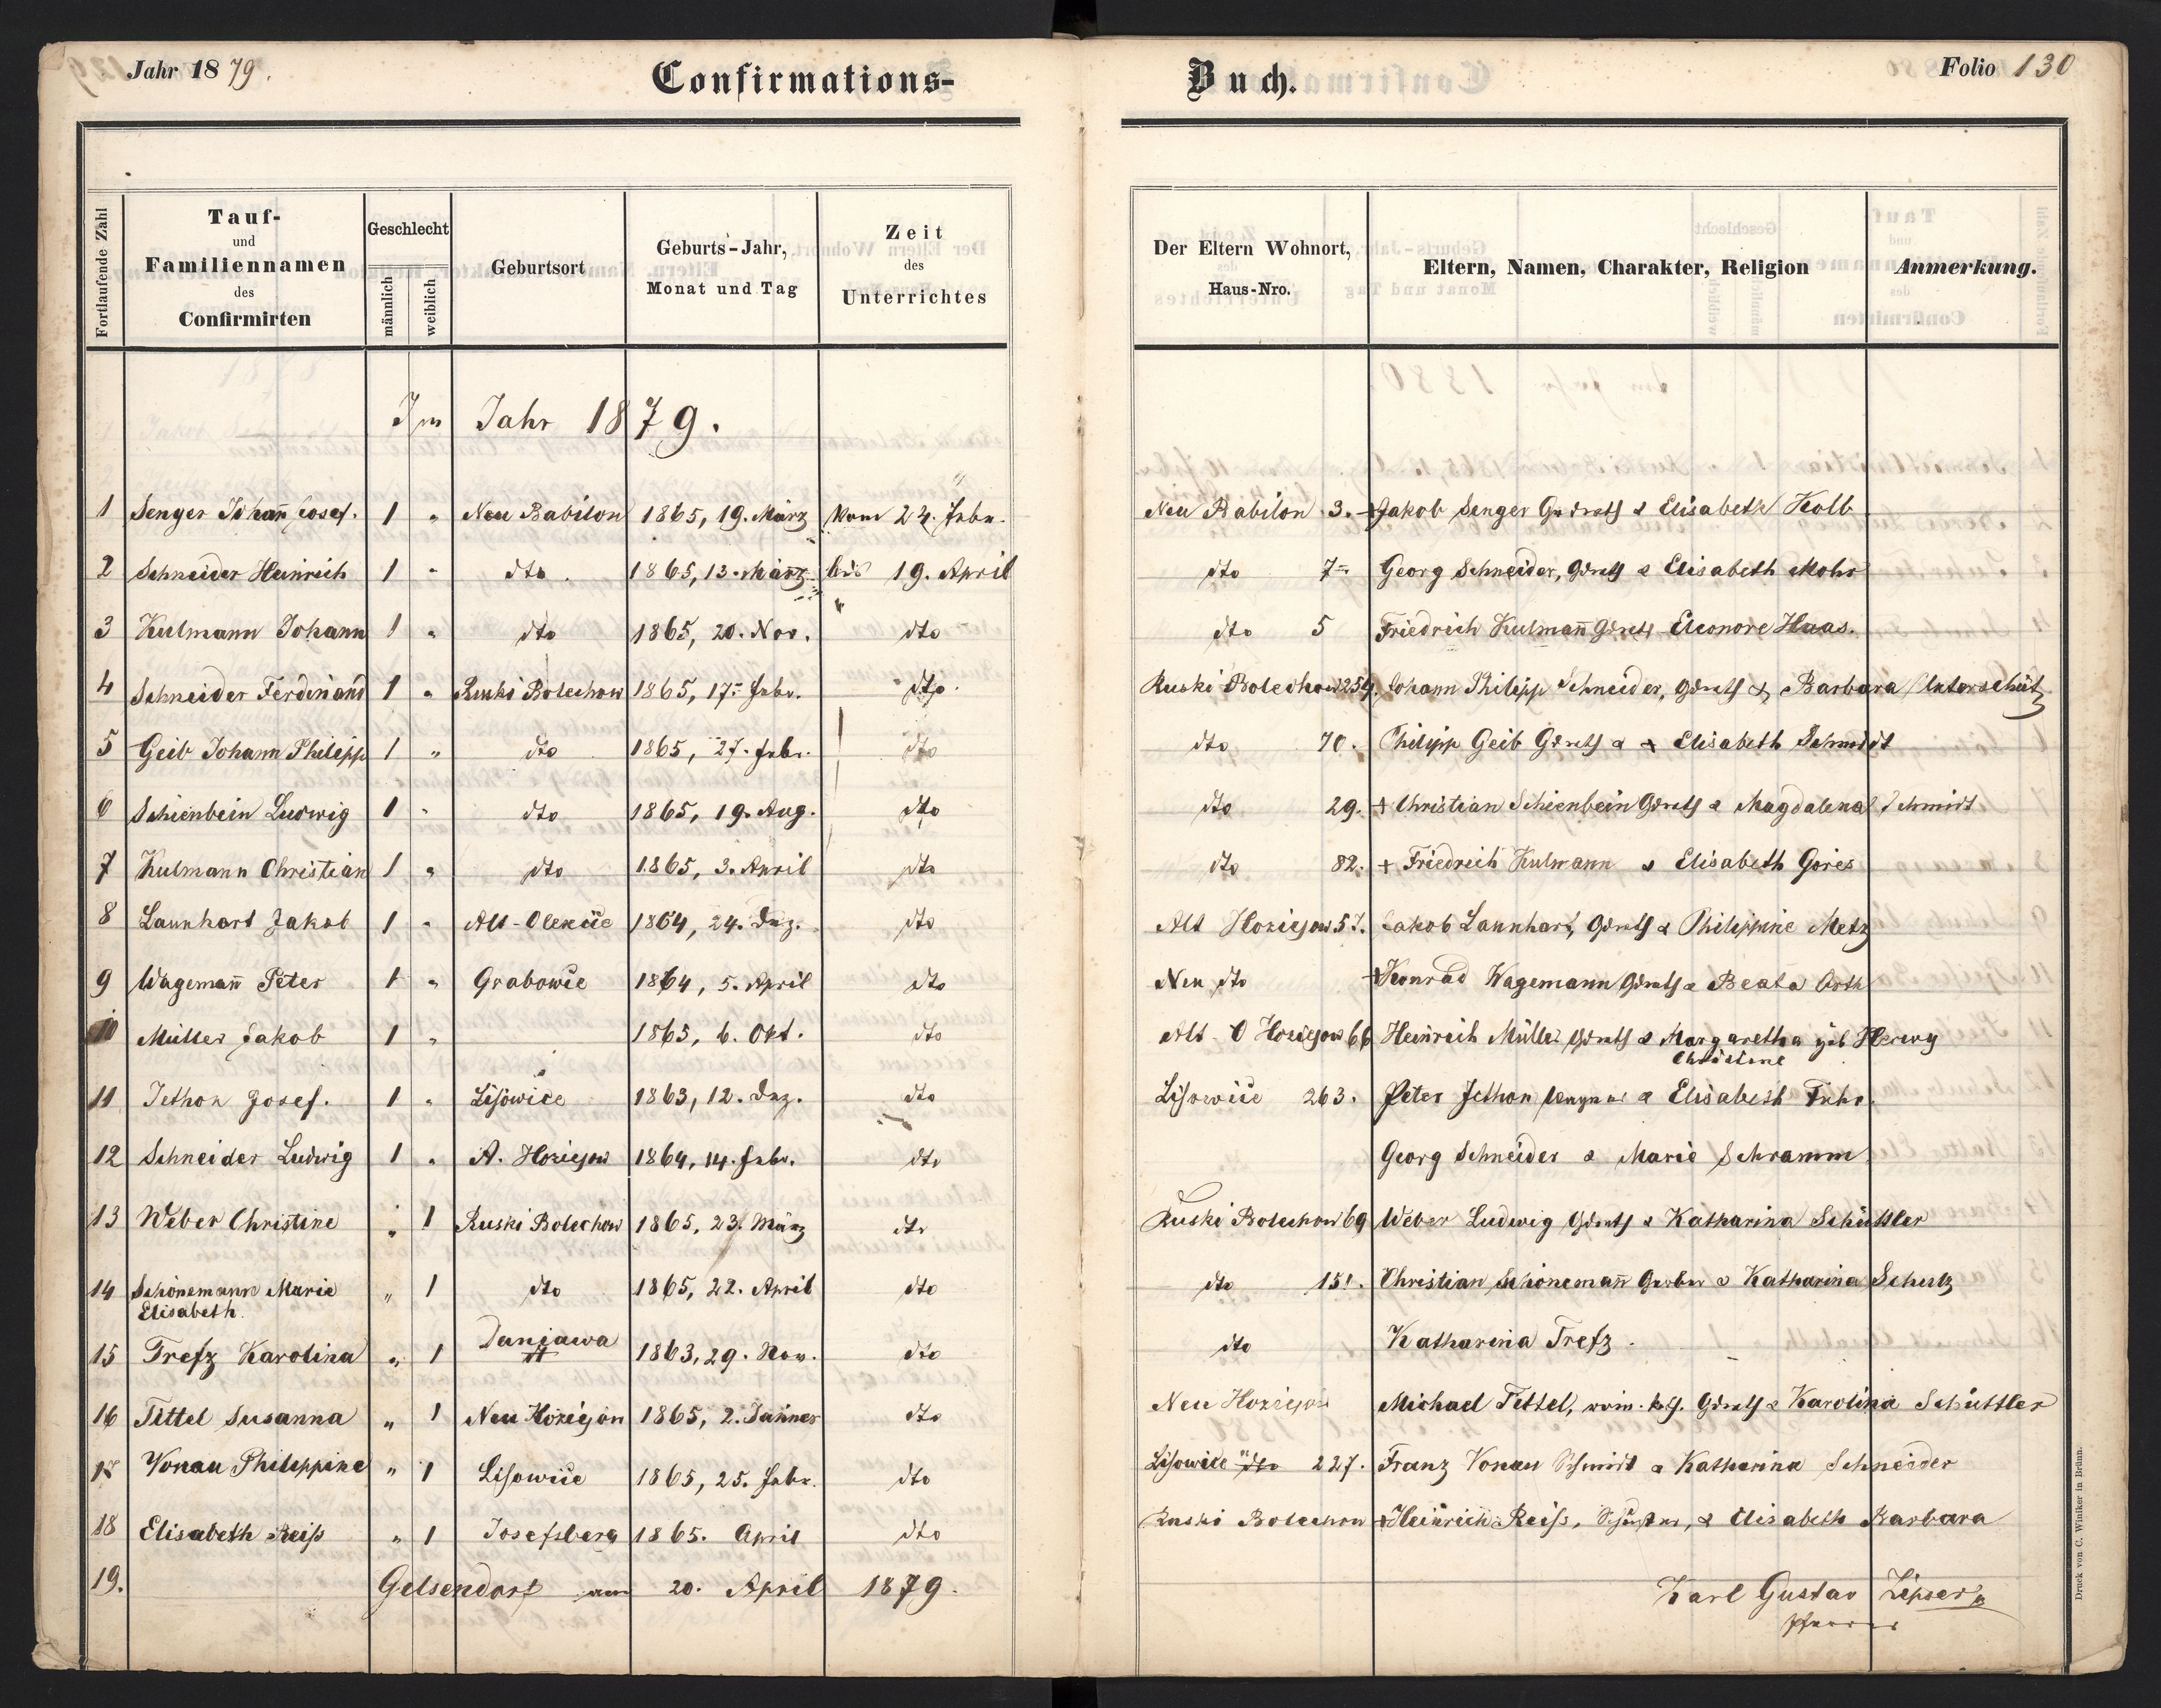 Jahr 1879.
Confirmations-Buch.
Folio 130
Fortlaufende Zahl | Tauf- und Familiennamen des Confirmirten | Geschlecht männlich weiblich | Geburtsort | Geburts-Jahr, Monat und Tag | Zeit des Unterrichtes | Der Eltern Wohnort, Haus-Nro. | Eltern, Namen, Charakter, Religion | Anmerkung.
Im Jahr 1879.
1 Senger Johañ Josef. 1 „ Neu Babilon 1865, 19. März vom 24. Febr. Neu Babilon 3. + Jakob Senger Grdrth & Elisabeth Kolb
2 Schneider Heinrich 1 „ dto. 1865, 13. März bis 19. April dto 7 Georg Schneider, Grdrth & Elisabeth Mohr
3 Kulmann Johann 1 „ dto 1865, 20. Nov. dto dto 5 Friedrich Kulmañ Grdrth Eleonore Haas.
4 Schneider Ferdinand 1 „ Ruski Bolechow 1865, 17. Febr. dto. Ruski Bolechow 254. Johann Philipp Schneider, Grdrth & Barbara Unterschütz
5 Geib Johann Philipp 1 „ dto 1865, 27. Febr. dto dto 70. Philipp Geib Grdrth & + Elisabeth Schmidt
6 Schienbein Ludwig 1 „ dto 1865, 19. Aug. dto dto 29. + Christian Schienbein Grdrth & Magdalena Schmidt
7 Kulmann Christian 1 „ dto 1865, 3. April dto dto 82. + Friedrich Kulmann & Elisabeth Gories
8 Launhart Jakob 1 „ Alt-Olexice 1864, 24. Dez. dto Alt Hoziejow 57. Jakob Launhart, Grdrth & Philippine Metz
9 Wagemañ Peter 1 „ Grabowie 1864, 5. April dto Neu dto + Konrad Wagemann Grdrth & Beata Orth
10 Müller Jakob 1 „ 1865, 6. Okt. dto Alt Hoziejow 66 Heinrich Müller Grdrth & Margaretha geb Herwy
Christine
11 Jethon Josef. 1 „ Lisowice 1863, 12. Dez. dto Lisowice 263. Peter Jethon & Elisabeth Fuhr.
12 Schneider Ludwig 1 „ A. Hoziejow 1864, 14. Febr. dto Georg Schneider & Marie Schramm
13 Weber Christine „ 1 Ruski Bolechow 1865, 23. März dto Ruski Bolechow 69 Weber Ludwig Grdrth & Katharina Schüttler
14 Schönemann Marie „ 1 dto 1865, 22. April dto dto 151. Christian Schönemañ Gerber & Katharina Schulz
Elisabeth.
15 Trefz Karolina „ 1 Duniawa 1863, 29. Nov. dto dto Katharina Trefz.
16 Tittel Susanna „ 1 Neu Hoziejow 1865, 2. Jänner dto Neu Hoziejow Michael Tittel, röm. kth. Grdrth & Karolina Schüttler
17 Vonau Philippine „ 1 Lisowice 1865, 25. Febr. dto Lisowice dto 227. Franz Vonau Schmidt & Katharina Schneider
18 Elisabeth Reiß „ 1 Josefsberg 1865. April dto Ruski Bolechow + Heinrich Reiß, Schuster, & Elisabeth Barbara
19. Gelsendorf am 20. April 1879.
Karl Gustav Lipser
Pfarrer
Druck von C. Winiker in Brünn.